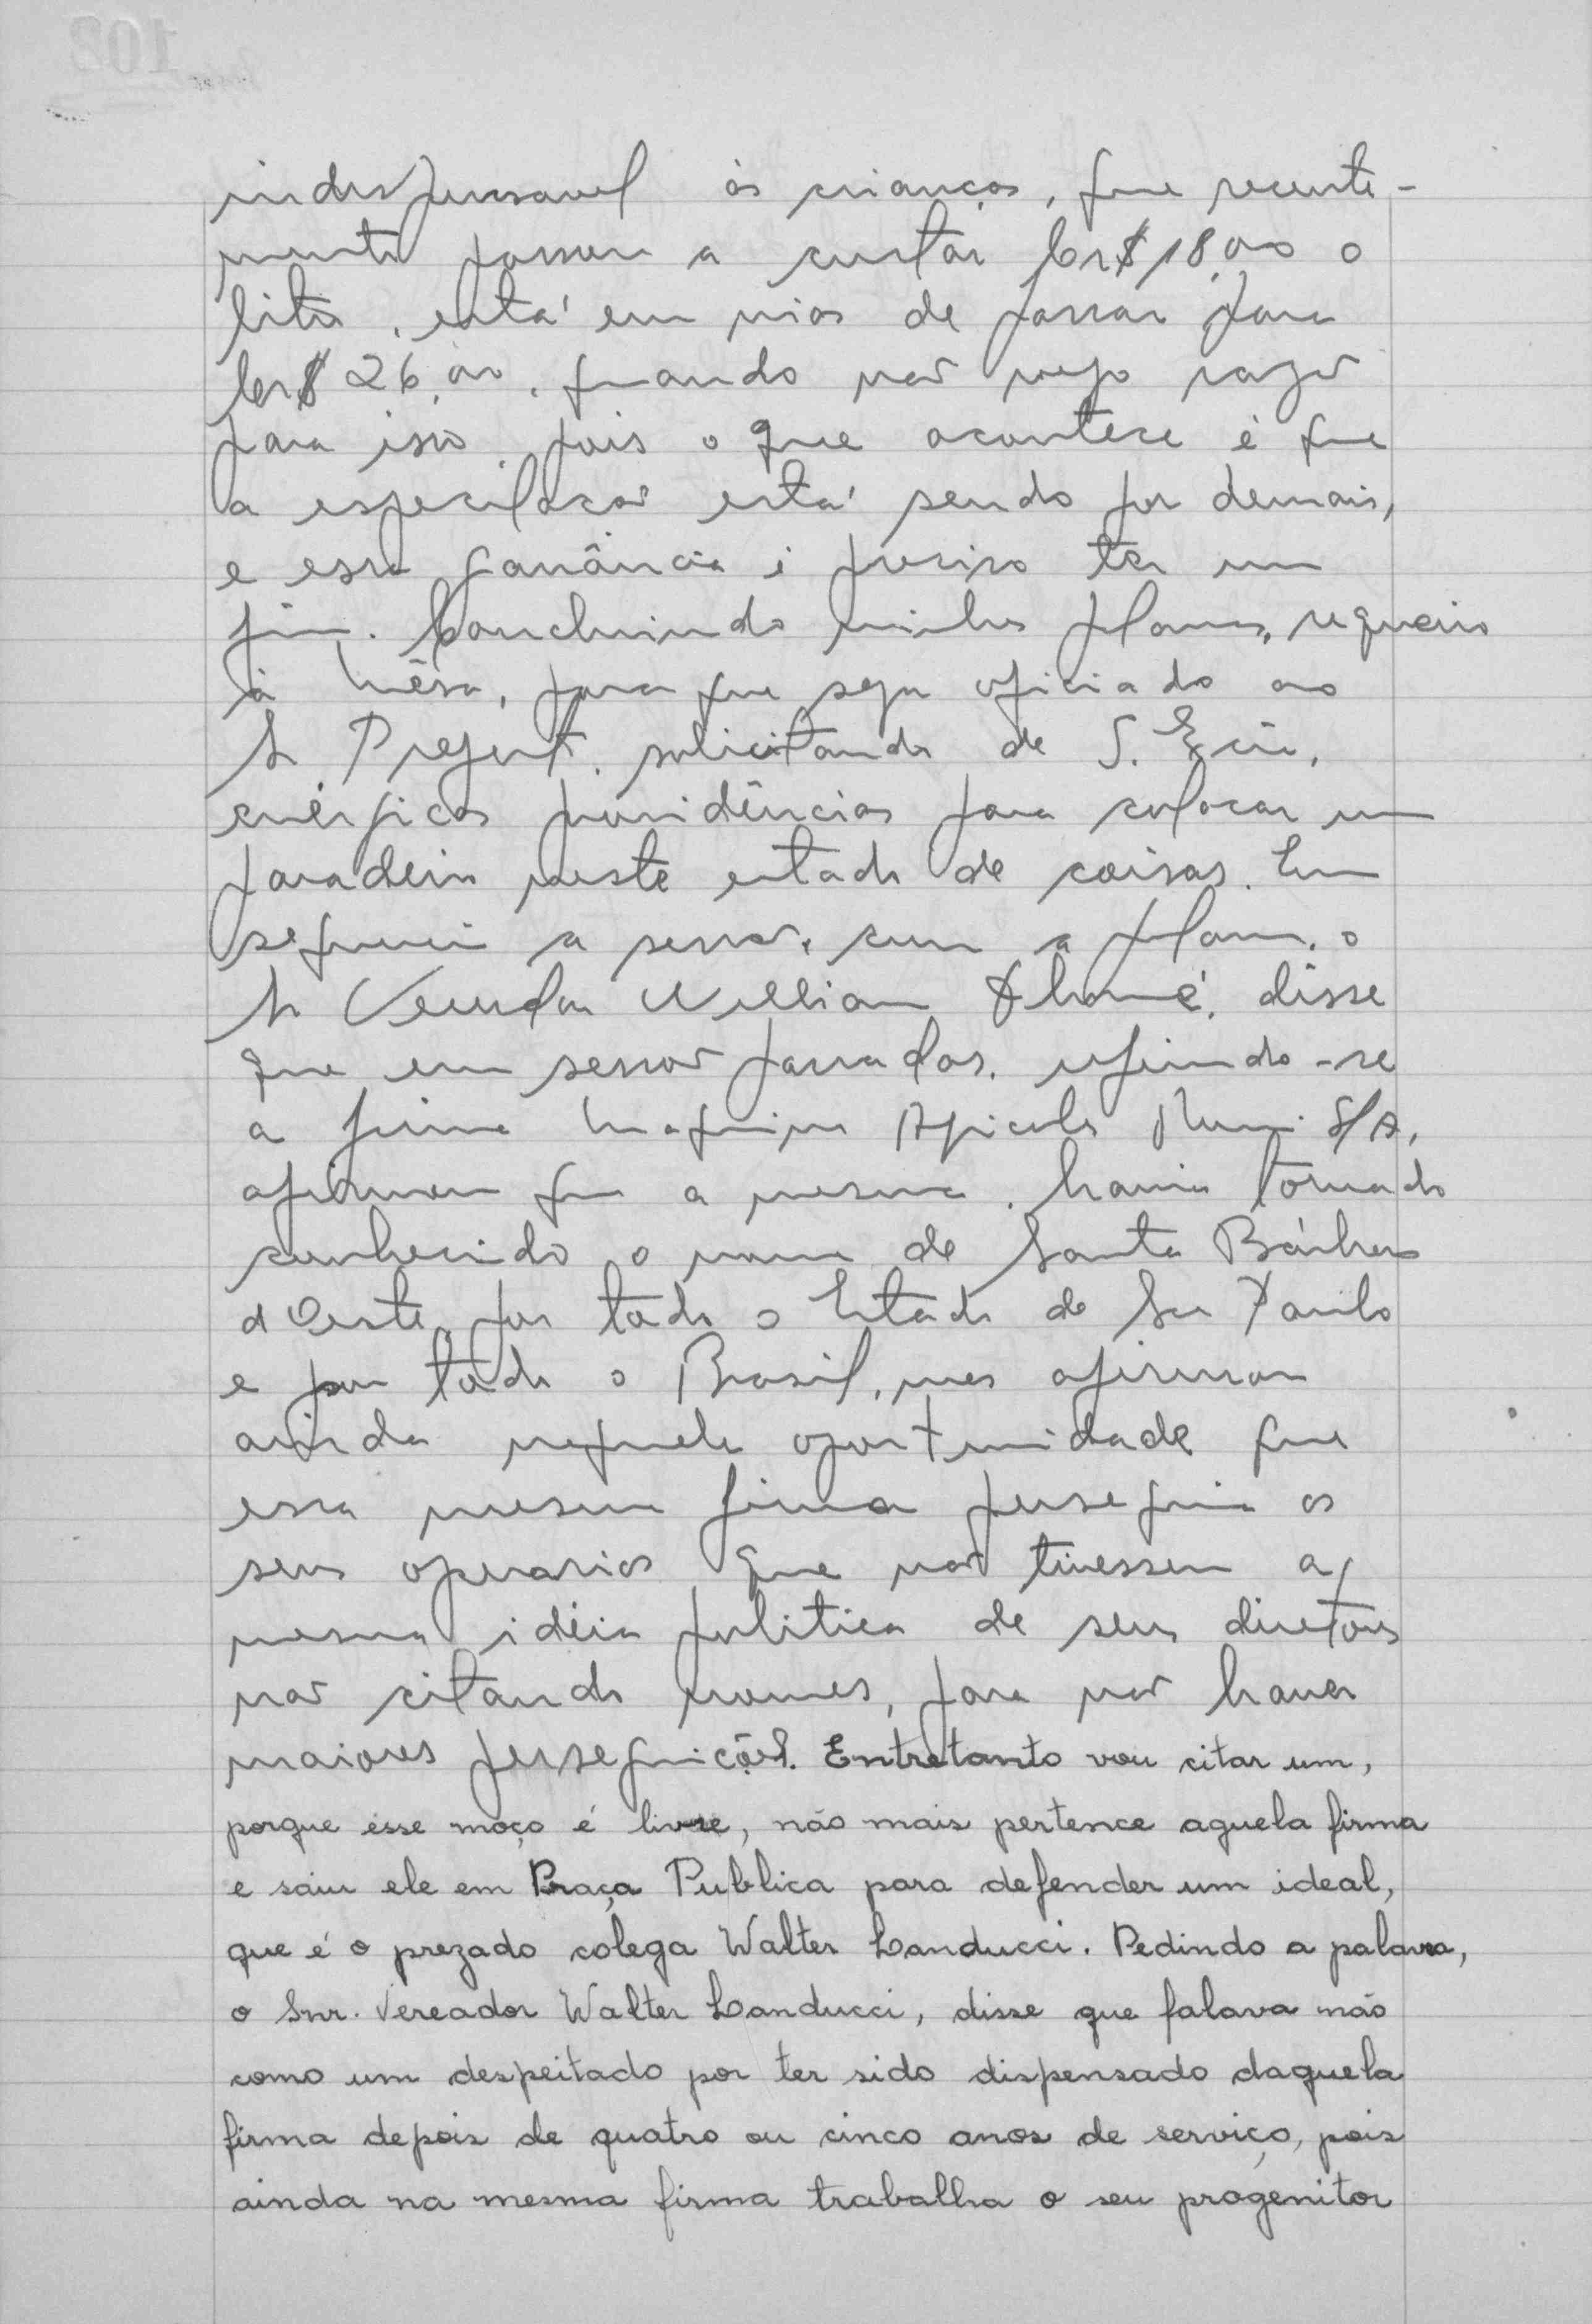 indispensavel às crianças, que recente-
mente passou a custar Cr$ 18,00 o
litro, está em vias de passar para
Cr$ 26,00, quando não vejo razão
para isso, pois o que acontece é que
a especulação está sendo por demais,
e essa ganância é preciso ter um
fim. Concluindo minhas palavras, requeiro
à Mêsa, para que seja oficiado ao
Sr Prefeito, solicitando de S. Excia,
enérgicas providências para colocar um
paradeiro neste estado de coisas. Em
seguida a sessão, com a palavra, o
Sr Vereador William disse
que em sessão passadas, referindo-se
a firma Maquinas Agricola Romi S/A,
afirmou que a mesma, havia tornado
conhecido o nome de Santa Bárbara
d'Oeste, por todo o Estado de São Paulo
e por todo o Brasil, mas afirmou
ainda naquela oportunidade que
essa mesma firma perseguia os
seus operarios que não tivessem a
mesma idéia politica de seus diretores
não citando nomes, para não haver
maiores perseguições. Entretanto vou citar um,
porque êsse moço é livre, não mais pertence aquela firma
e saiu ele em Praça Publica para defender um ideal,
que é o prezado colega Walter Landucci. Pedindo a palavra,
o Snr. Vereador Walter Landucci, disse que falava não
como um despeitado por ter sido dispensado daquela
firma depois de quatro ou cinco anos de serviço, pois
ainda na mesma firma trabalha o seu progenitor